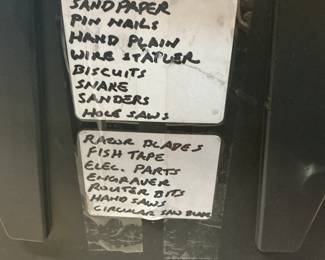 SANDPAPER
PIN NAILS
HAND PLAIN
WIRE STAPLER
BISCUITS
SNAKE
SANDERS
HOLE SAWS
RAZOR BLADES
FISH TAPE
ELEC. PARTS
ENGRAVER
ROUTER BITS
HAND SAWS
CIRCULAR SAW BLADE